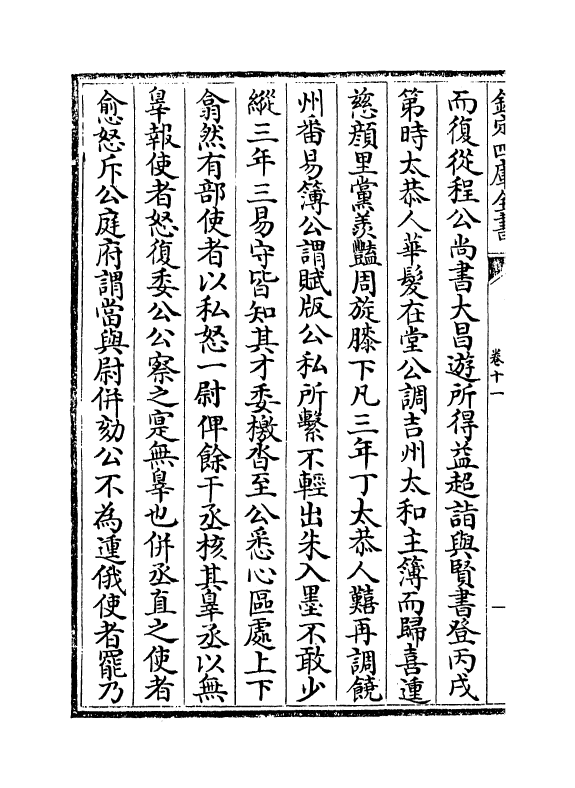 欽定四庫全書
卷十一
一
而復從程公尚書大昌遊所得益超詣與賢書登丙戌
第時太恭人華髮在堂公調吉州太和主簿而歸喜連
慈顔里黨羨豔周旋膝下凡三年丁太恭人囏再調饒
州番易簿公謂賦版公私所繫不輕出朱入墨不敢少
縱三年三易守皆知其才委檄沓至公悉心區處上下
翕然有部使者以私怒一尉俾餘干丞核其辠丞以無
辠報使者怒復委公公察之寔無辠也併丞直之使者
愈怒斥公庭府謂當與尉併劾公不為連俄使者罷乃